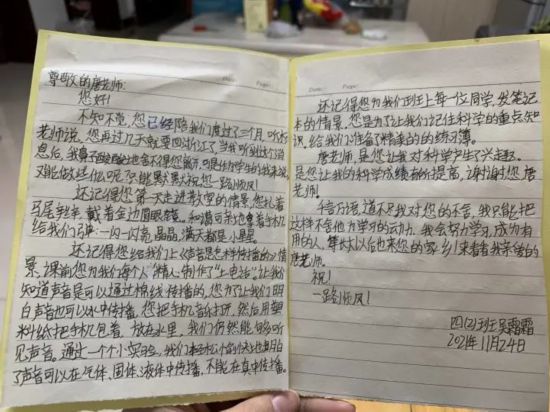 尊敬的唐老师:
您好!
不知不觉,您已经陪我们度过了三个月,听
老师说,您再过几天就要回浙江了,当我听到这个消
息后,我鼻子酸酸地舍不得您离开,可是作为学生的我来说
又能做些什么呢?只能默默祝您一路顺风!
还记得您第一天走进教室的情景,您扎着
马尾辫,戴着金边眼镜,和蔼可亲地拿着手机
给我们弹一闪一闪亮晶晶,满天都是小星星。
还记得您给我们上《声音是怎样传播的》
景,课前您为我们每个人精心制作了“土电话”让我们
知道声音是可以通过棉线传播的,您为了让我们明
白声音也可以水中传播,您把手机音乐打开,然后用塑
料纸把手机包着,放在水里,我们仍然能够听
见声音。通过一个个小实验,我们
了声音可以在气体、固体、液体中传播,不能在真中传播。
还记得您为我们班上每一位同学,发笔记
本的情景,您是为了让我们记住科学的重点知
识,给我们准备了精美的的练习簿。
唐老师,是您让我对科学产生了兴趣。
是您让我的科学成绩有所提高,谢谢您唐
老师。
千言万语,道不尽我对您的不舍,我只能把
这样不舍化为学习的动力。我会努力学习,成为有
用的人,等长大以后来您的家乡!来看看我亲爱的
唐老师。
祝!
一路顺风!
四(2)班吴露露
2021年11月24日